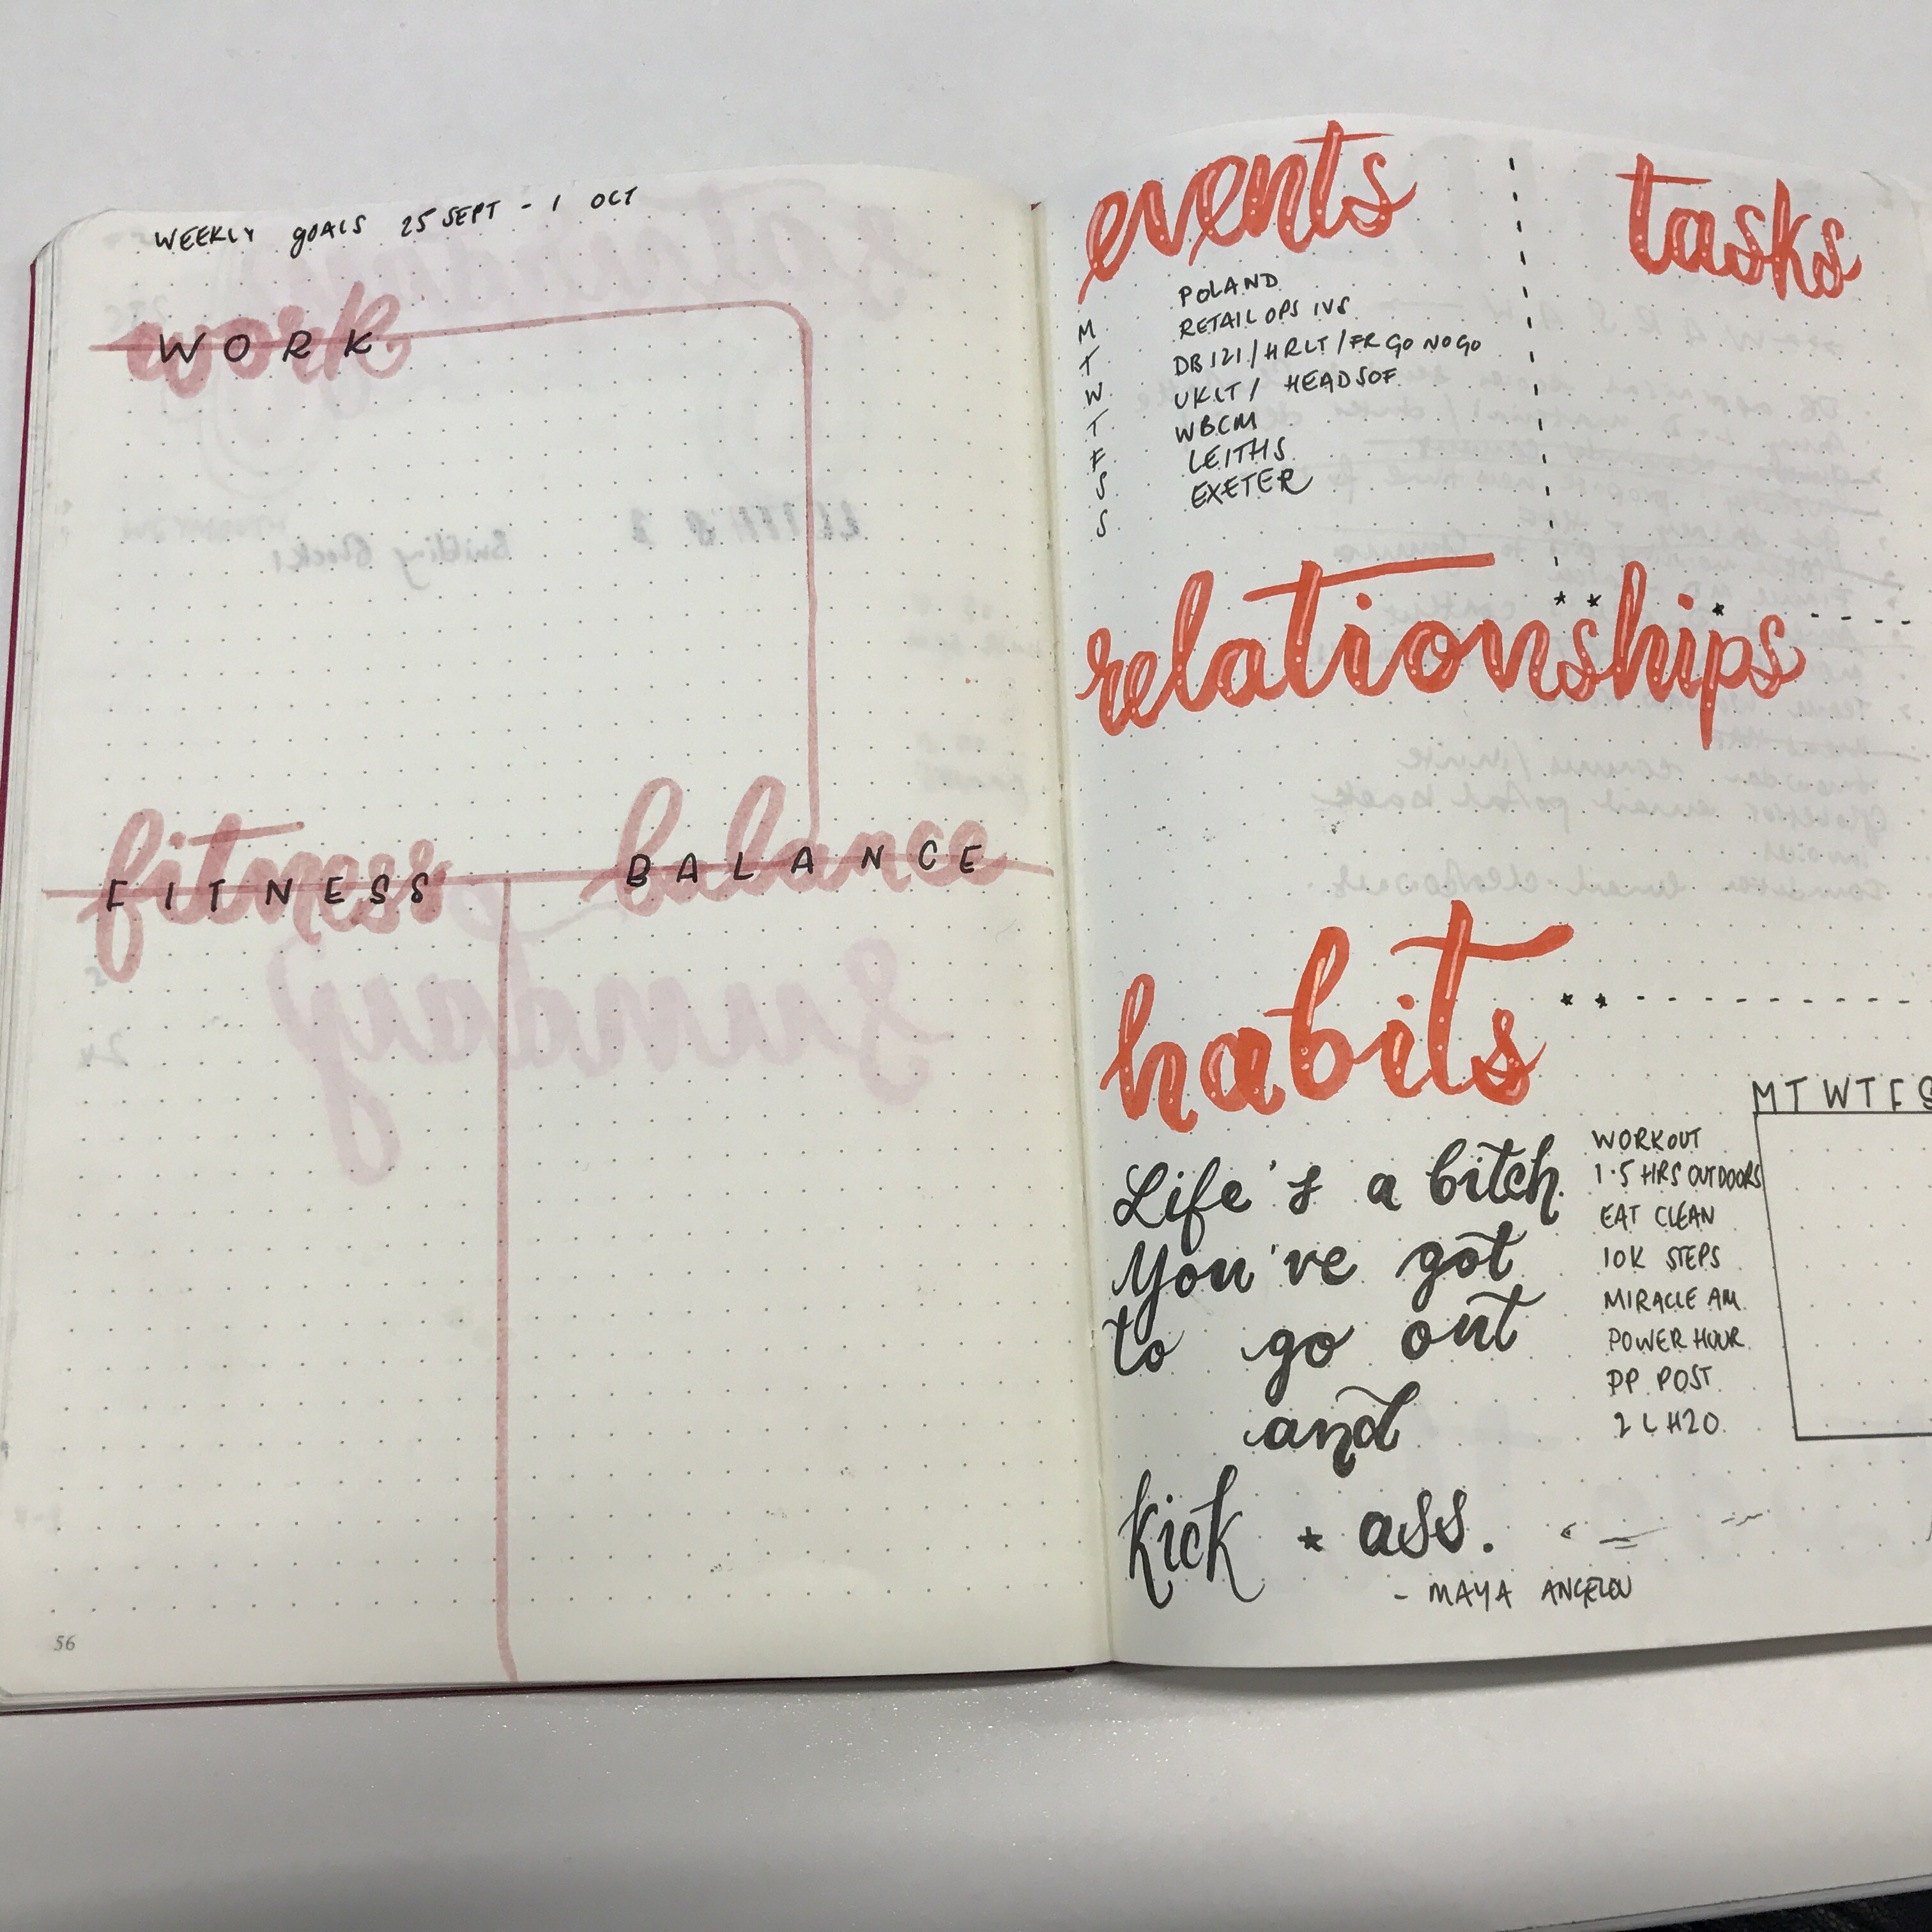 WEEKLY GOALS 25 SEPT - 1 OCT
work
WORK
fitness
FITNESS
balance
BALANCE
56
events
M POLAND
T RETAIL OPS IVS
W DB 121 / HRLT / FR GO NO GO
T UKLT / HEADSOF
F WBCM
S LEITHS
S EXETER
tasks
relationships
habits
Life's a bitch
You've got
to go out
and
kick * ass.
- MAYA ANGELOU
M T W T F S
WORKOUT
1.5 HRS OUTDOORS
EAT CLEAN
10K STEPS
MIRACLE AM
POWER HOUR
PP POST
2 L H2O
saturday
sunday
Building Blocks